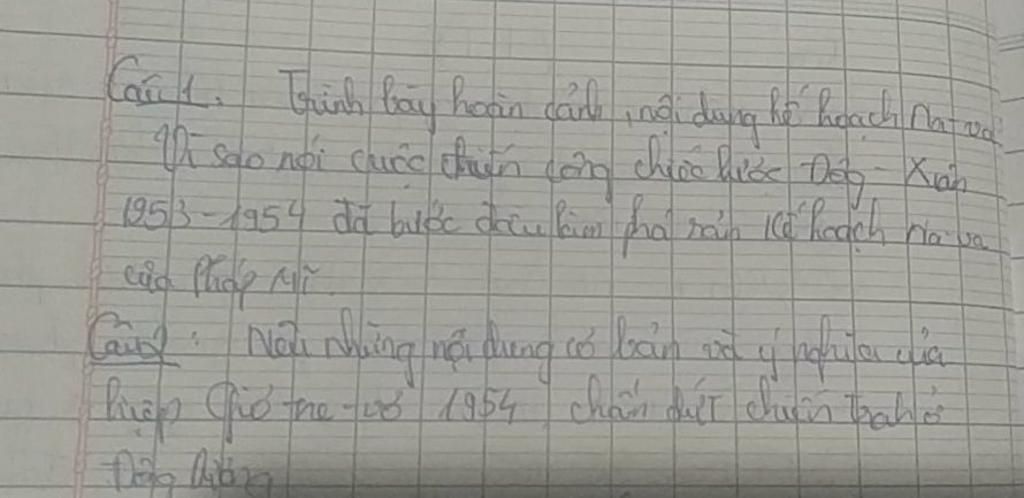 Câu 1. Trình bày hoàn cảnh, nội dung kế hoạch Na-va
Vì sao nói cuộc chiến công chiến lược Đông - Xuân
1953-1954 đã bước đầu làm phá sản kế hoạch Na-va
của Pháp Mĩ
Câu2: Nêu những nội dung cơ bản và ý nghĩa của
hiệp Giơ-ne-vơ 1954 chấm dứt chiến tranh ở
Đông Dương